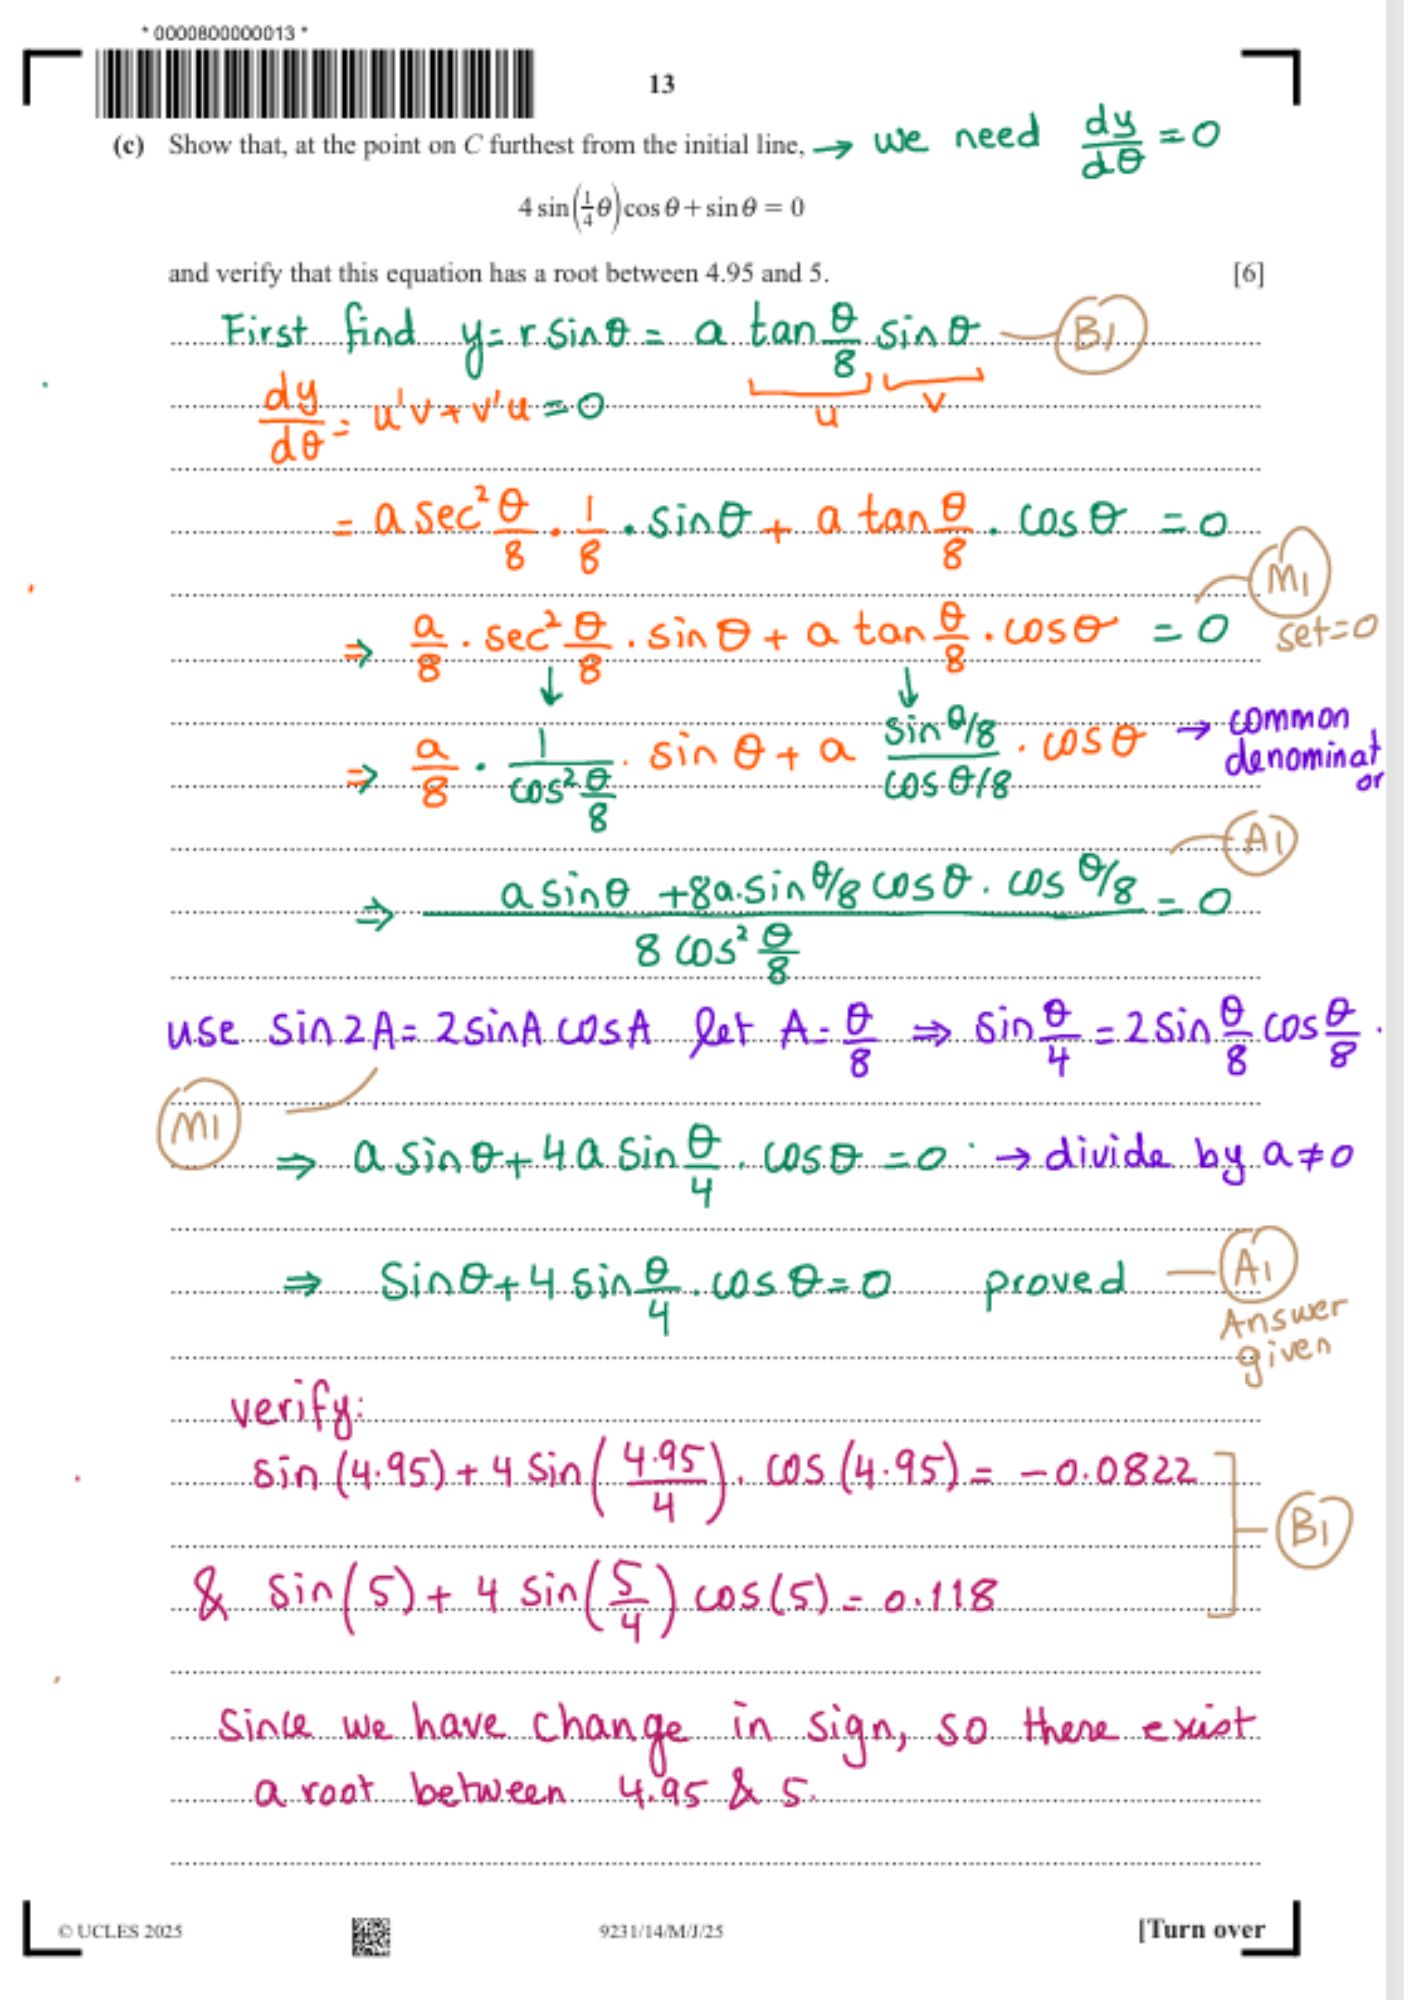 * 0000800000013 *
13
(c) Show that, at the point on C furthest from the initial line, → we need dy/dθ = 0
4 sin(1/4 θ) cos θ + sin θ = 0
and verify that this equation has a root between 4.95 and 5. [6]
First find y = r sinθ = a tan θ/8 sin θ B1
u v
dy/dθ = u'v + v'u = 0
= a sec² θ/8 · 1/8 · sinθ + a tan θ/8 · cosθ = 0
M1
⇒ a/8 · sec² θ/8 · sin θ + a tan θ/8 · cosθ = 0 set=0
↓ ↓
⇒ a/8 · 1/cos² θ/8 · sin θ + a sin θ/8 / cos θ/8 · cosθ → common denominator
A1
⇒ (a sinθ + 8a. sin θ/8 cosθ . cos θ/8) / (8 cos² θ/8) = 0
use sin 2A = 2 sinA cosA let A = θ/8 ⇒ sin θ/4 = 2 sin θ/8 cos θ/8 .
M1
⇒ a sinθ + 4 a sin θ/4 . cosθ = 0 → divide by a ≠ 0
⇒ Sinθ + 4 sin θ/4 . cos θ = 0 proved A1
Answer given
verify:
sin (4.95) + 4 sin (4.95/4) . cos (4.95) = -0.0822
B1
& sin(5) + 4 sin(5/4) cos(5) = 0.118
Since we have change in sign, so there exist
a root between 4.95 & 5.
© UCLES 2025 9231/14/M/J/25 [Turn over